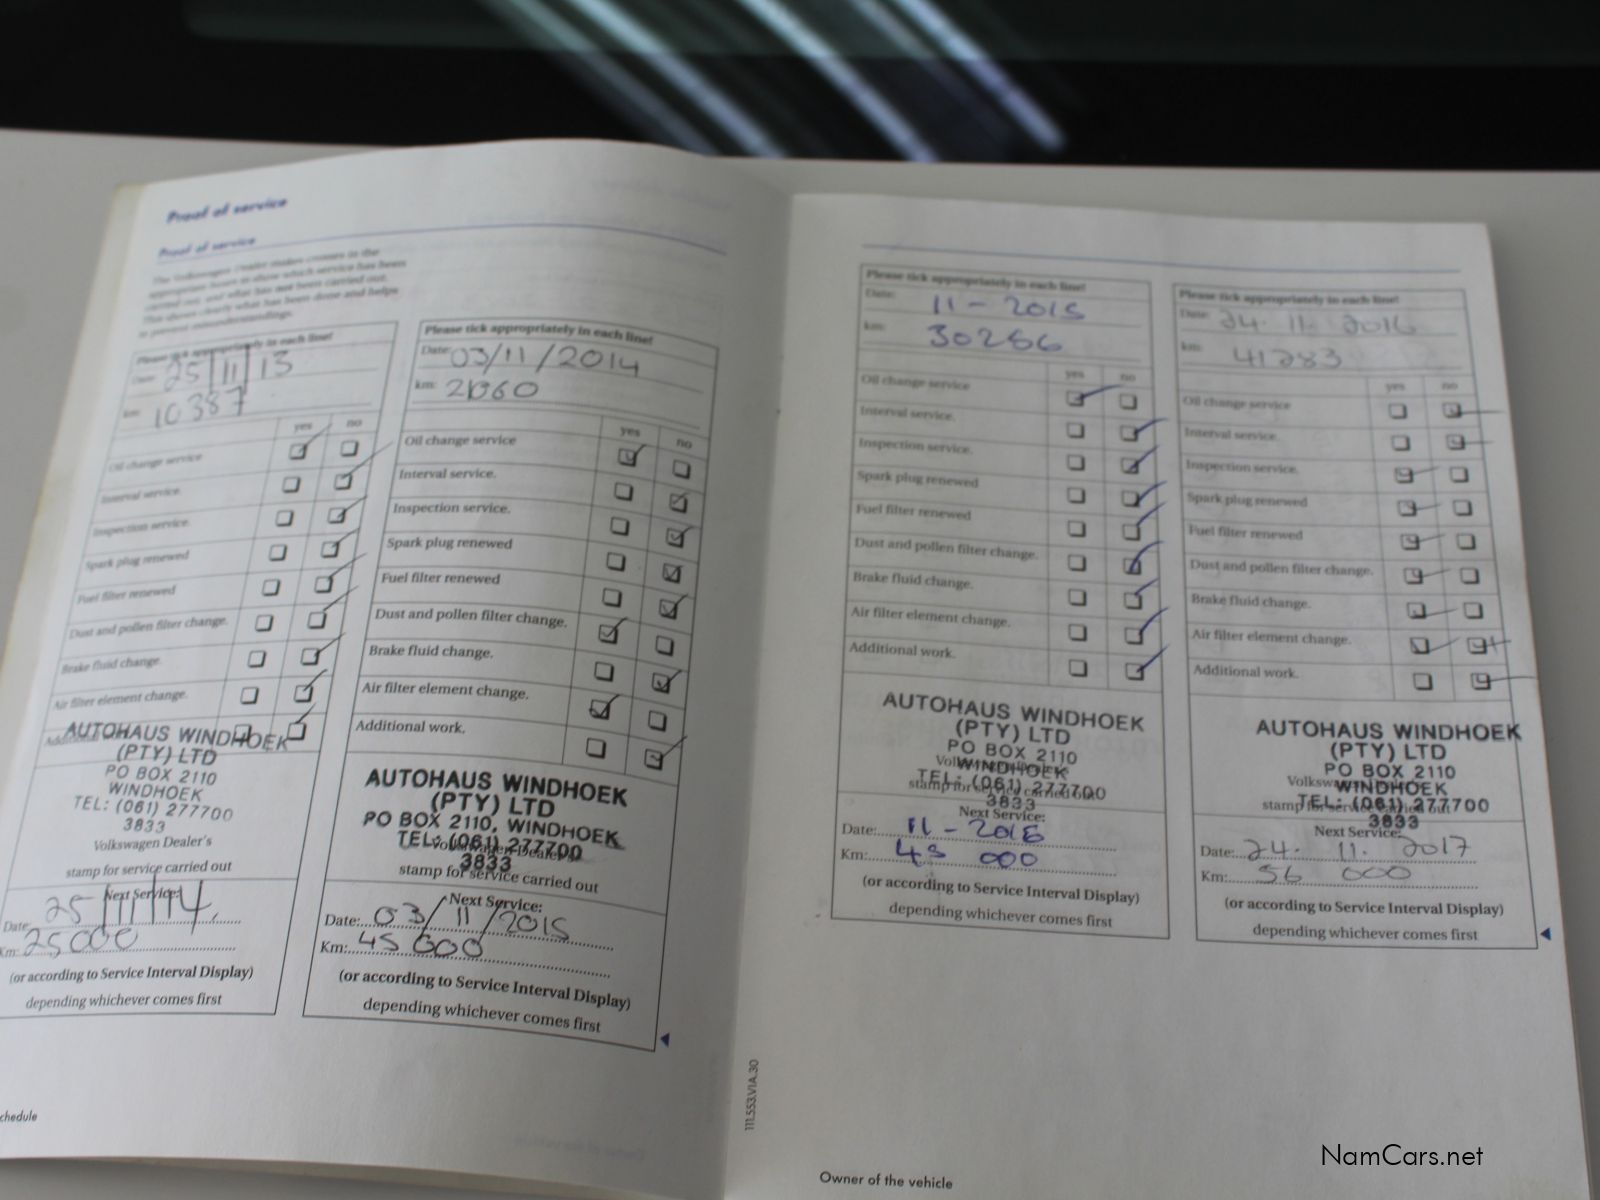 Proof of service
Proof of service
The Volkswagen Dealer makes crosses in the
appropriate boxes to show which service has been
carried out, and what has not been carried out.
This shows clearly what has been done and helps
to prevent misunderstandings.
Please tick appropriately in each line!
Date: 25/11/13
km: 10387
yes no
Oil change service
Interval service.
Inspection service.
Spark plug renewed
Fuel filter renewed
Dust and pollen filter change.
Brake fluid change.
Air filter element change.
AUTOHAUS WINDHOEK
(PTY) LTD
PO BOX 2110
WINDHOEK
TEL: (061) 277700
3833
Volkswagen Dealer's
stamp for service carried out
Next Service:
Date: 25/11/14
Km: 25000
(or according to Service Interval Display)
depending whichever comes first
Please tick appropriately in each line!
Date: 03/11/2014
km:
yes no
Oil change service
Interval service.
Inspection service.
Spark plug renewed
Fuel filter renewed
Dust and pollen filter change.
Brake fluid change.
Air filter element change.
Additional work.
AUTOHAUS WINDHOEK
(PTY) LTD
PO BOX 2110, WINDHOEK
TEL: (061) 277700
3833
stamp for service carried out
Next Service:
Date: 03/11/2015
Km: 45 000
(or according to Service Interval Display)
depending whichever comes first
chedule
111.553.V1A.30
Please tick appropriately in each line!
Date: 11 - 2015
km: 30286
yes no
Oil change service
Interval service.
Inspection service.
Spark plug renewed
Fuel filter renewed
Dust and pollen filter change.
Brake fluid change.
Air filter element change.
Additional work.
AUTOHAUS WINDHOEK
(PTY) LTD
PO BOX 2110
WINDHOEK
TEL: (061) 277700
3833
stamp for service carried out
Next Service:
Date: 11 - 2016
Km: 45 000
(or according to Service Interval Display)
depending whichever comes first
Please tick appropriately in each line!
Date: 24. 11. 2016
km: 41283
yes no
Oil change service
Interval service.
Inspection service.
Spark plug renewed
Fuel filter renewed
Dust and pollen filter change.
Brake fluid change.
Air filter element change.
Additional work.
AUTOHAUS WINDHOEK
(PTY) LTD
PO BOX 2110
WINDHOEK
TEL: (061) 277700
3833
stamp for service carried out
Next Service:
Date: 24. 11. 2017
Km: 56 000
(or according to Service Interval Display)
depending whichever comes first
Owner of the vehicle
NamCars.net